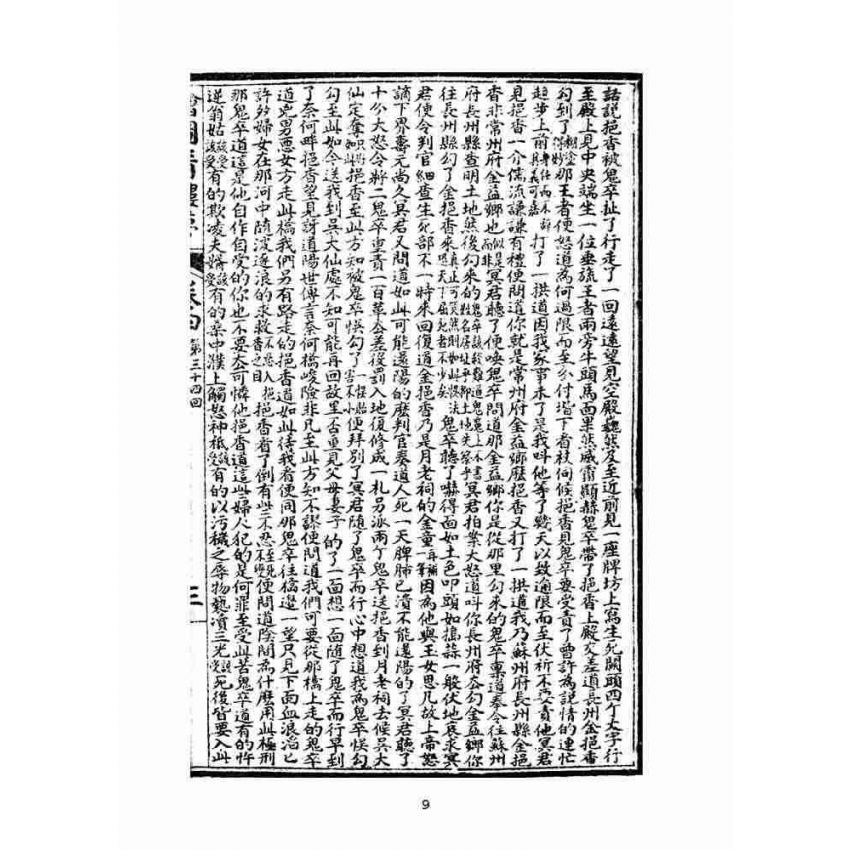 話說挹香被鬼卒扯了行走了一回遠遠望見空殿巍然及至近前見一座牌坊上寫生死關頭四个大字行
至殿上見中央端坐一位垂旒王者兩旁牛頭馬面果然威肅顯赫鬼卒帶了挹香上殿交差道長州金挹香
勾到了那王者便怒道為何過限而至分付堦下者杖伺候挹香見鬼卒要受責了曾許為說情的連忙
趨步上前打了一拱道因我家事未了是我叫他等了幾天以致逾限而至伏祈不要責他冥君
見挹香一介儒流謙謙有禮便問道你就是常州府金益鄉麽挹香又打了一拱道我乃蘇州府長州縣金挹
香非常州府金益鄉也冥君聽了便喚鬼卒問道那金益鄉你是從那里勾來的鬼卒稟道奉令往蘇州
府長州縣查明土地然後勾來的冥君拍案大怒道叫你長州府去勾金益鄉你
往長州縣勾了金挹香來鬼卒聽了嚇得面如土色叩頭如搗蒜一般伏地哀求冥
君便令判官細查生死部不一時來回復道金挹香乃是月老祠的金童因為他與玉女思凡故上帝怒
謫下界壽元尚久冥君又問道如此可能還陽的麽判官奏道人死一天脾肺已潰不能還陽的了冥君聽了
十分大怒令將二鬼卒重責一百革去差役罰入地復修成一札另派兩个鬼卒送挹香到月老祠去候吳大
仙定奪挹香至此方知被鬼卒悞勾了便拜別了冥君隨了鬼卒而行心中想道我為鬼卒悞勾
勾至此如今送我到吳大仙處不知可能再回故里否重見父母妻子的了一面想一面隨了鬼卒而行早到
了奈何畔挹香望見訝道陽世傳言奈何橋峻險非凡至此方知不謬便問道我們可要從那橋上走的鬼卒
道兇男惡女方走此橋我們另有路走的挹香道如此待我看便同那鬼卒往橋邊一望只見下面血浪滔已
許多婦女在那河中隨波逐浪的求救挹香看了倒有些不忍便問道陰間為什麽用此極刑
那鬼卒道這是他自作自受的你也不要去可憐他挹香道這些婦人犯的是何罪至受此苦鬼卒道有的忤
逆翁姑有的欺凌夫婿有的桑中濮上觸怒神祇有的以污穢之辱物褻瀆三光死後皆要入此
第三十四回
9